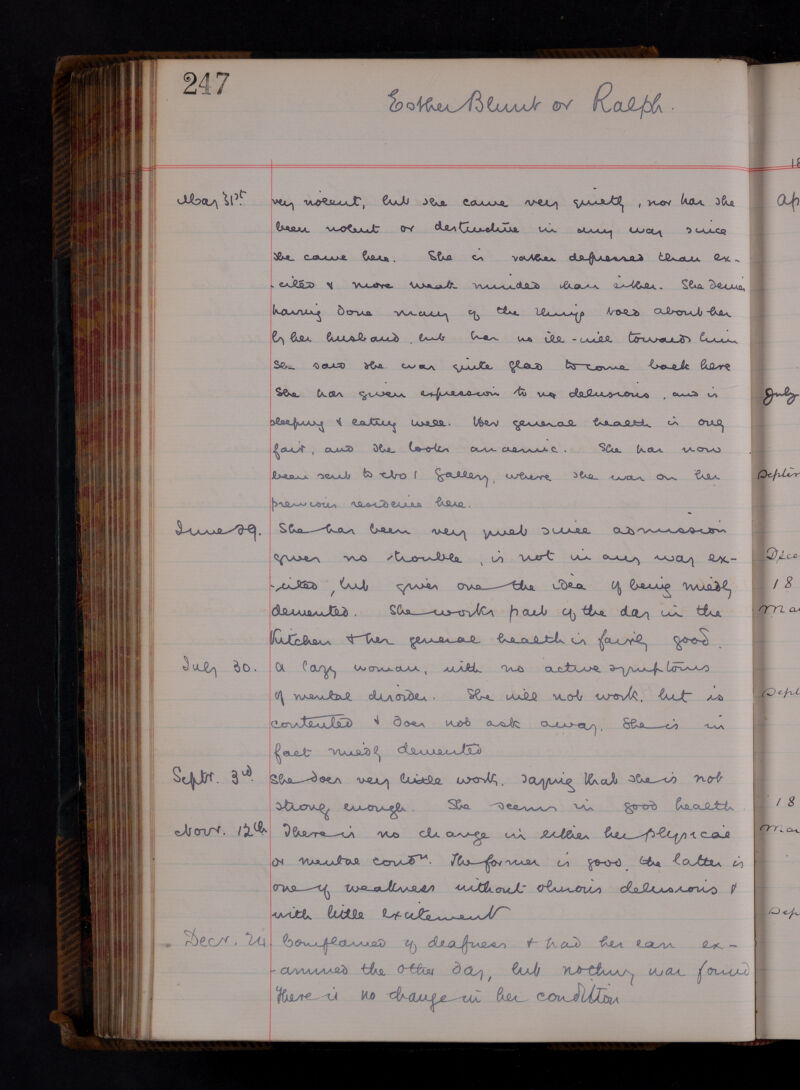 247
Esther Blunt or Ralph.
May 31st. very violent, but she came very quietly, nor has she
been violent or destructive in any way since
she came here. She is rather depressed than ex-
-cited & more weak minded than either. She denies
having done many of the things told about her
by her husband, but has no ill-will towards him
She said she was quite glad to come back here
She has given expression to no delusions, and is
sleeping & eating well. Her general health is only
fair, and she looks anaemic. She has now
been sent to No 1 Gallery, where she was on her
previous residence here.
June 29. She has been very quiet since admission
given no trouble, is not in any way ex-
-cited, but gives one the idea of being mildly
demented. She works part of the day in the
Kitchen & her general health is fairly good.
July 30. A lazy woman, with no active symptoms
of mental disorder. She will not work, but is
contented & does not ask away. She is in
fact mildly demented
Septr. 3rd. She does very little work, saying that she is not
strong enough. She seems in good health.
Novr. 12th There is no change in either her physical
or mental condn. The former is good, the latter is
one of weakness without obvious delusions &
with little excitement
Decr. 24 Complained of deafness & had her ears ex-
-amined the other day, but nothing was found
There is no change in her condition
18
Ap
July
Septr
Dece
18
Ma
Sept
18
Mar
Sep